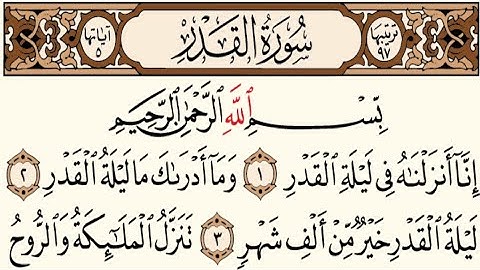 ترتيبها ٩٧ سُورَةُ القَدْرِ آياتها ٥
بِسْمِ اللَّهِ الرَّحْمَٰنِ الرَّحِيمِ
إِنَّآ أَنزَلْنَٰهُ فِى لَيْلَةِ ٱلْقَدْرِ ١ وَمَآ أَدْرَىٰكَ مَا لَيْلَةُ ٱلْقَدْرِ ٢
لَيْلَةُ ٱلْقَدْرِ خَيْرٌ مِّنْ أَلْفِ شَهْرٍ ٣ تَنَزَّلُ ٱلْمَلَٰٓئِكَةُ وَٱلرُّوحُ